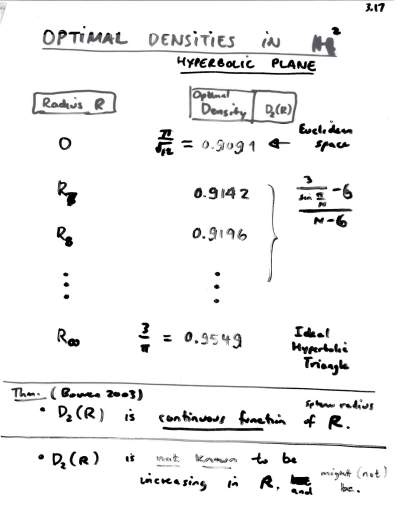 3.17
OPTIMAL DENSITIES IN H²
HYPERBOLIC PLANE
Radius R
Optimal Density
D₂(R)
0
π/√12 = 0.9091 ← Euclidean space
R₇
0.9142
R₈
0.9196
(3/(sin π/N) - 6)/(N-6)
⋮ ⋮
R∞
3/π = 0.9549
Ideal Hyperbolic Triangle
Thm. (Bowen 2003)
• D₂(R) is continuous function of sphere radius R.
• D₂(R) is not known to be
increasing in R, and might (not) be.